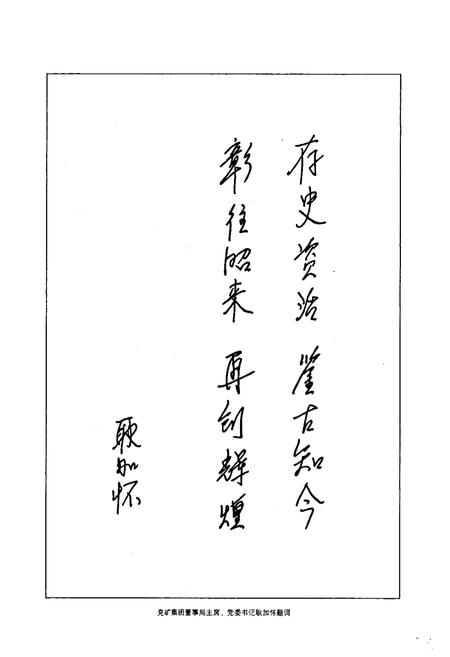 存史资治 鉴古知今
彰往昭来 再创辉煌
耿加怀
兖矿集团董事局主席、党委书记耿加怀题词